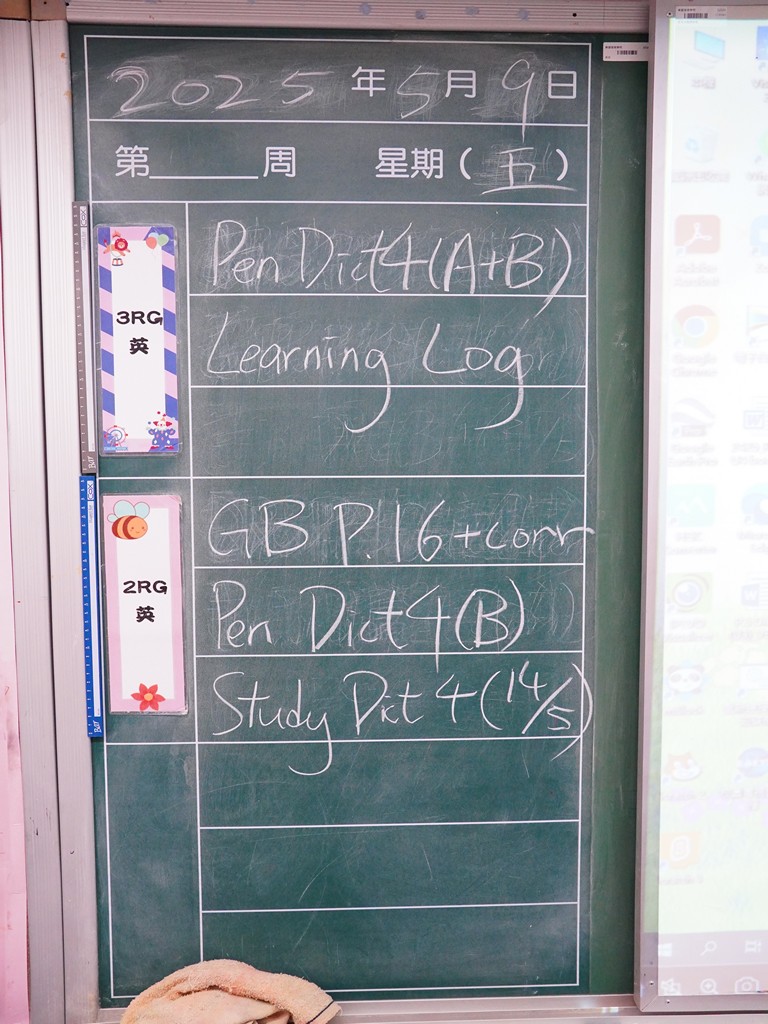 2025年5月9日
第______周 星期(五)
3RG
英
Pen Dict 4 (A+B)
Learning Log
2RG
英
GB P.16 + corr
Pen Dict 4 (B)
Study Dict 4 (14/5)